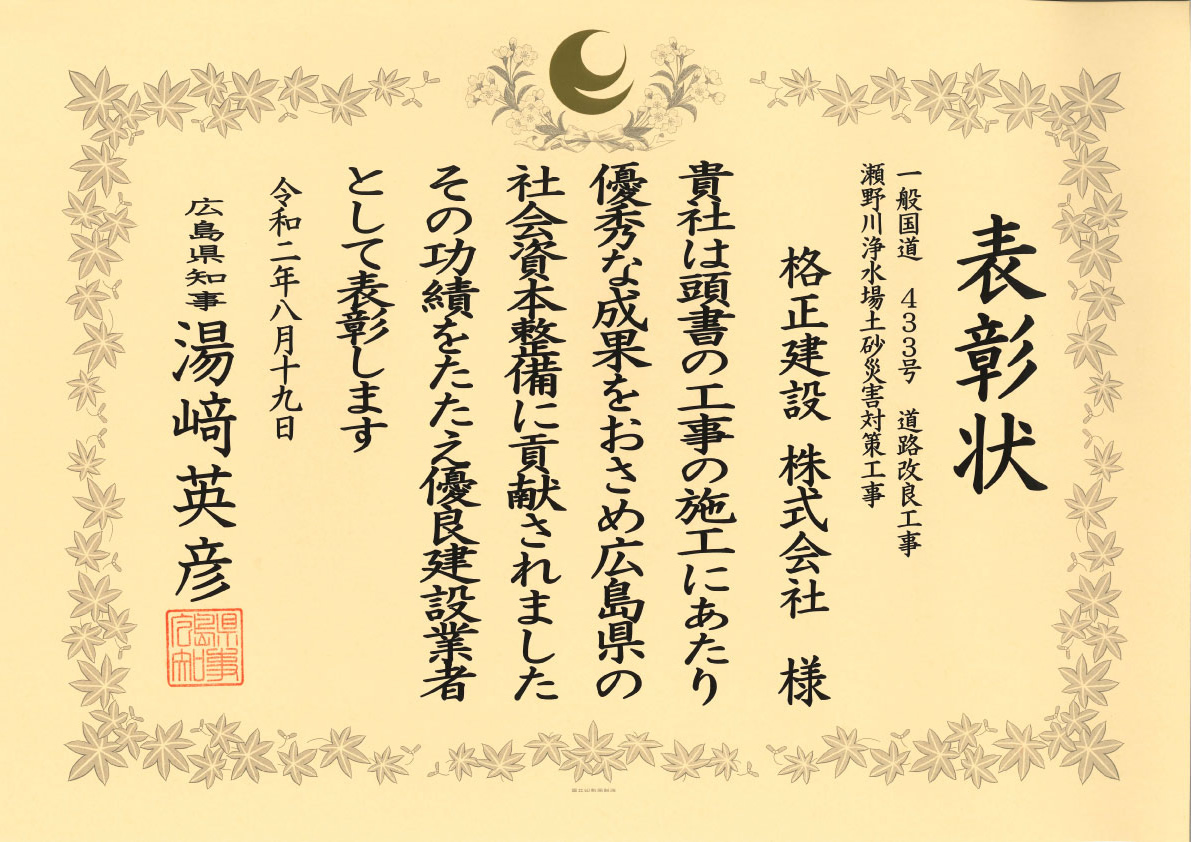 表彰状
一般国道 433号 道路改良工事
瀬野川浄水場土砂災害対策工事
格正建設 株式会社 様
貴社は頭書の工事の施工にあたり
優秀な成果をおさめ広島県の
社会資本整備に貢献されました
その功績をたたえ優良建設業者
として表彰します
令和二年八月十九日
広島県知事 湯﨑英彦
広島県知事